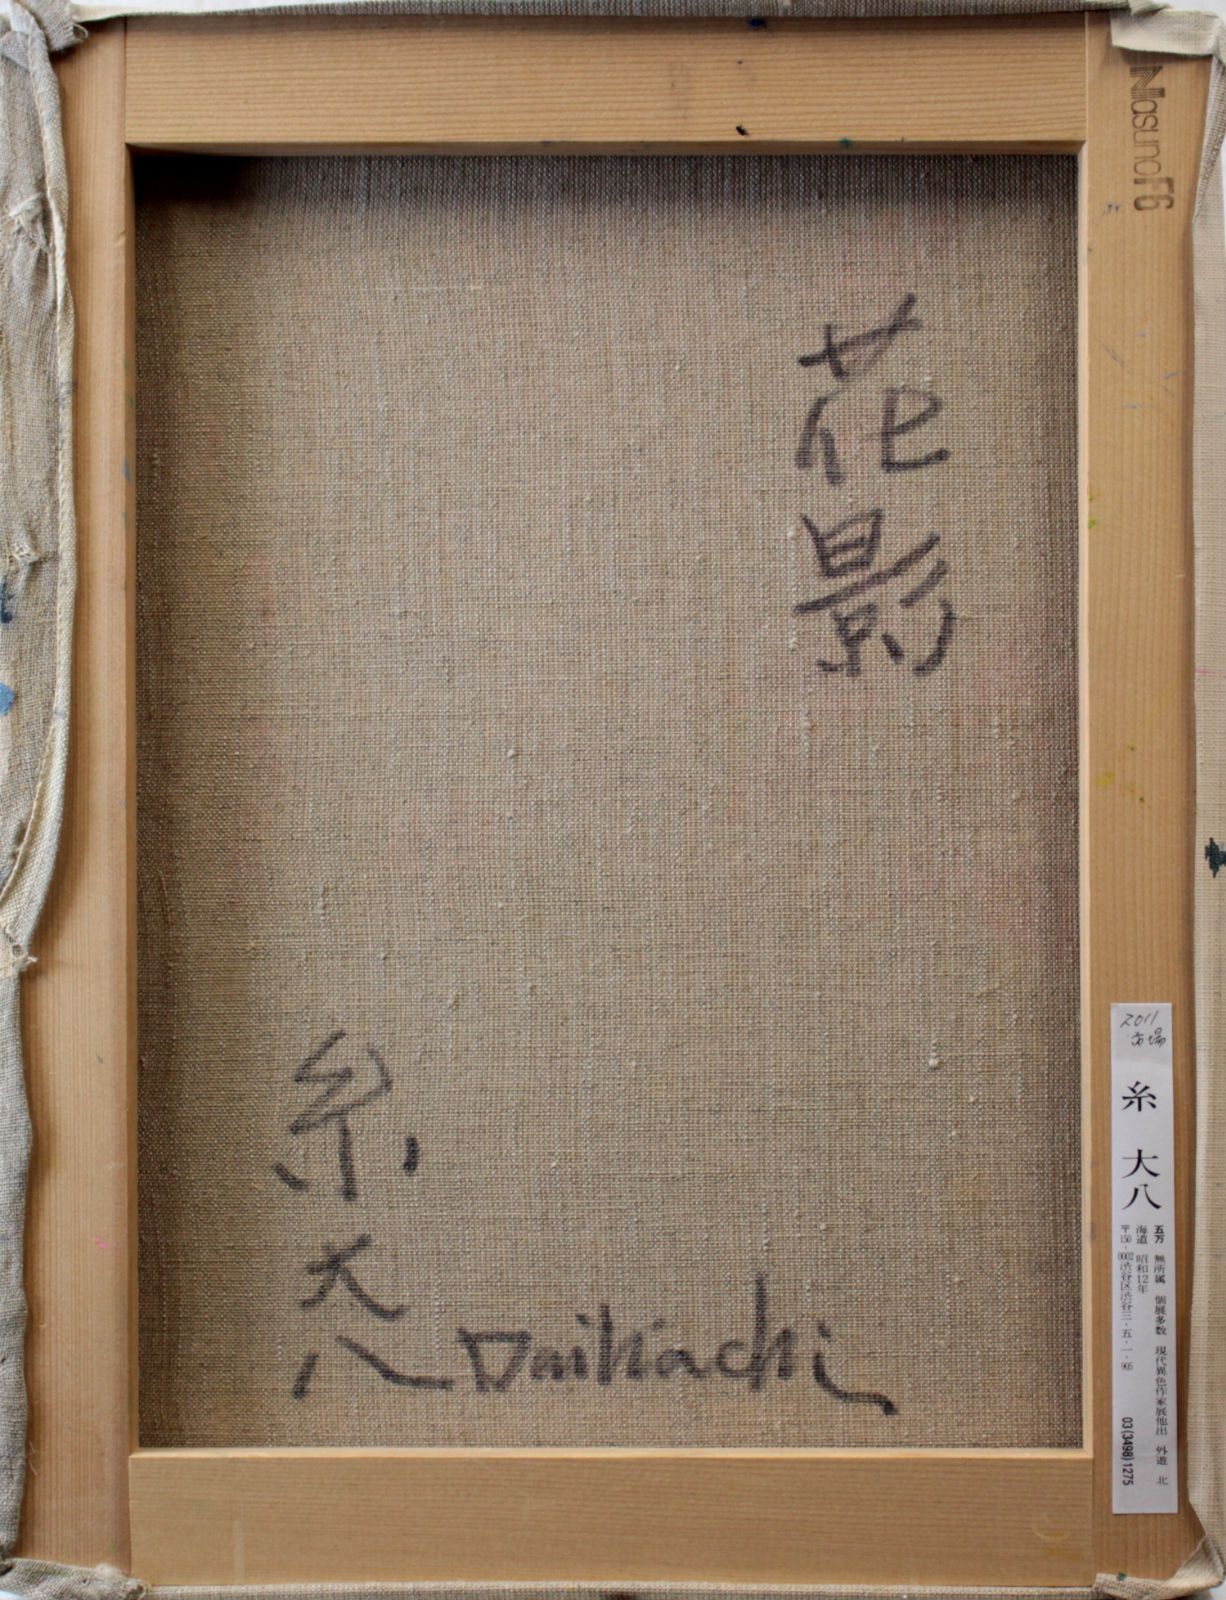 NasunoF6
花影
糸大八
Daihachi
2011
市場
糸 大八
五万 無所属 個展多数 現代異色作家展他出 外遊 北
海道 昭和12年
〒150-0002渋谷区渋谷三・五・一・905
03(3498)1275